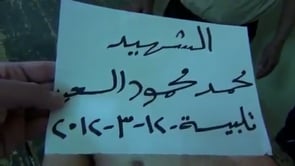 الشهيد
محمد محمود السعيد
تلبيسة-١٢-٣-٢٠١٢